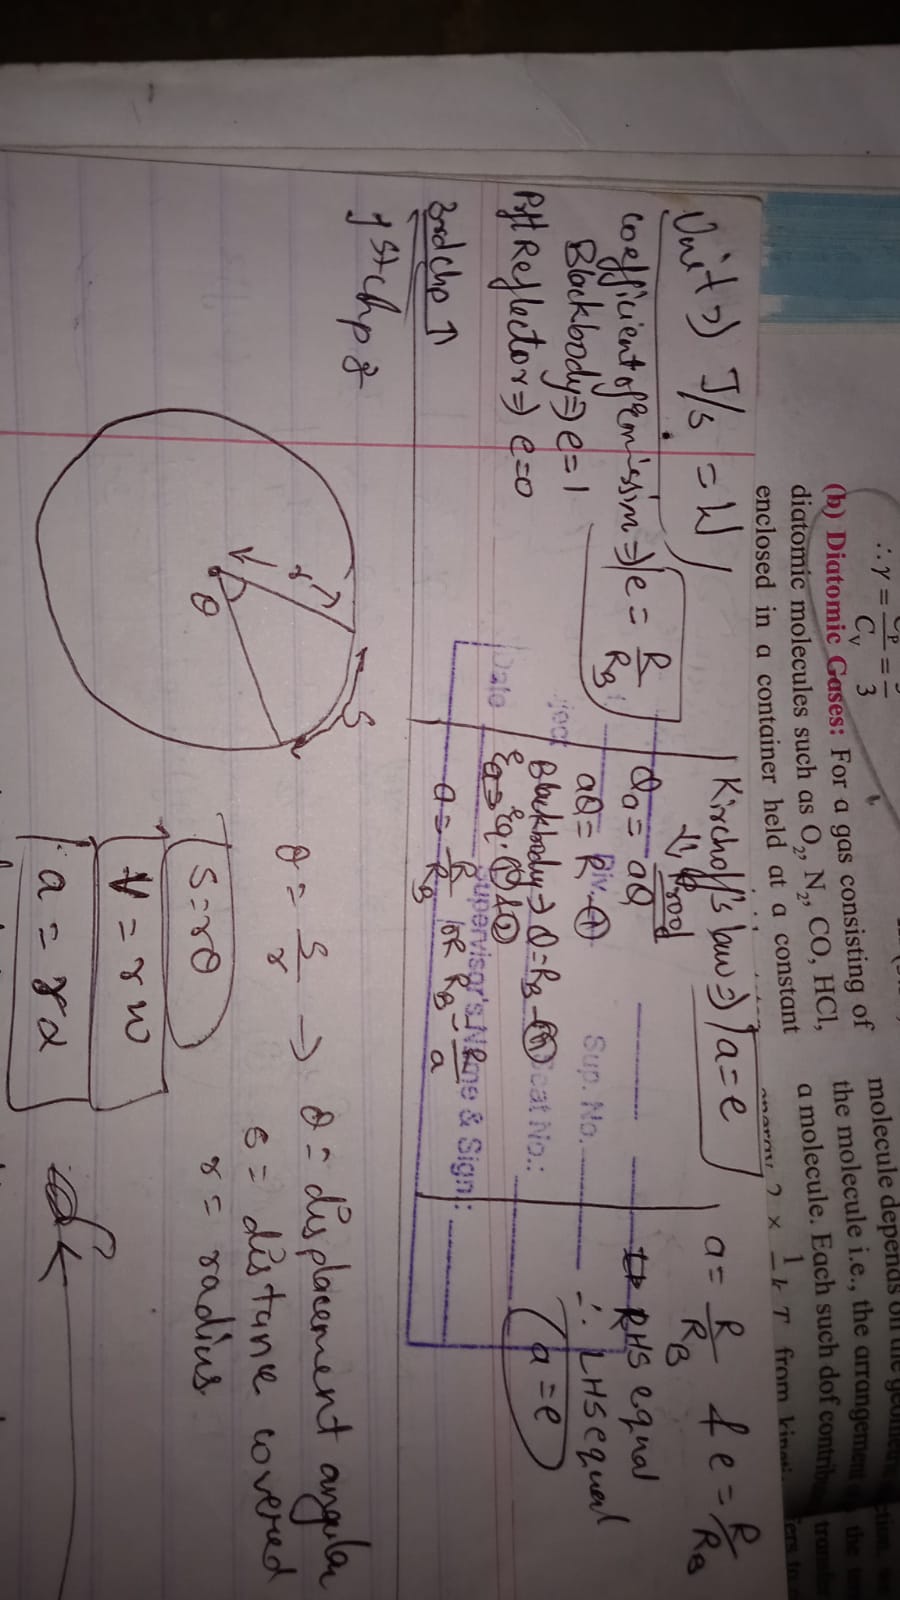 ∴ γ = C_P/C_V = 5/3
(b) Diatomic Gases: For a gas consisting of
diatomic molecules such as O₂, N₂, CO, HCl,
enclosed in a container held at a constant
molecule depends on the
the molecule i.e., the arrangement
a molecule. Each such dof
? × 1/2 k T from
Unit ⇒ J/s = W
coefficient of Emission ⇒ e = R/R_B
Blackbody ⇒ e = 1
Pft Reflector ⇒ e = 0
Kirchoff's law ⇒ a = e
⇓ Proof
Q_a = aQ
aQ = R - ①
Blackbody ⇒ Q = R_B - ②
Eq ⇒ Eq. ① & ②
a = R/R_B or R_B = R/a
a = R/R_B & e = R/R_B
RHS equal
∴ LHS equal
a = e
Date
ject
Div.
Sup. No.
Seat No.:
Supervisor's Name & Sign.:
3rd chp ↑
1st chp
r
S
θ
θ = s/r → θ = displacement angular
s = distance covered
r = radius
s = rθ
v = rw
a = rα